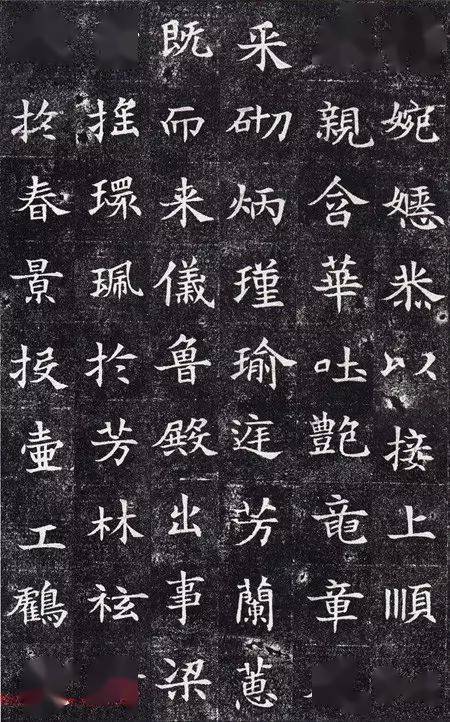 婉嫕恭以接上順
親含華吐艷竜章
采砌炳瑾瑜庭芳蘭蕙
既而来儀魯殿出事梁
搖環珮於芳林袨
於春景投壺工鸖